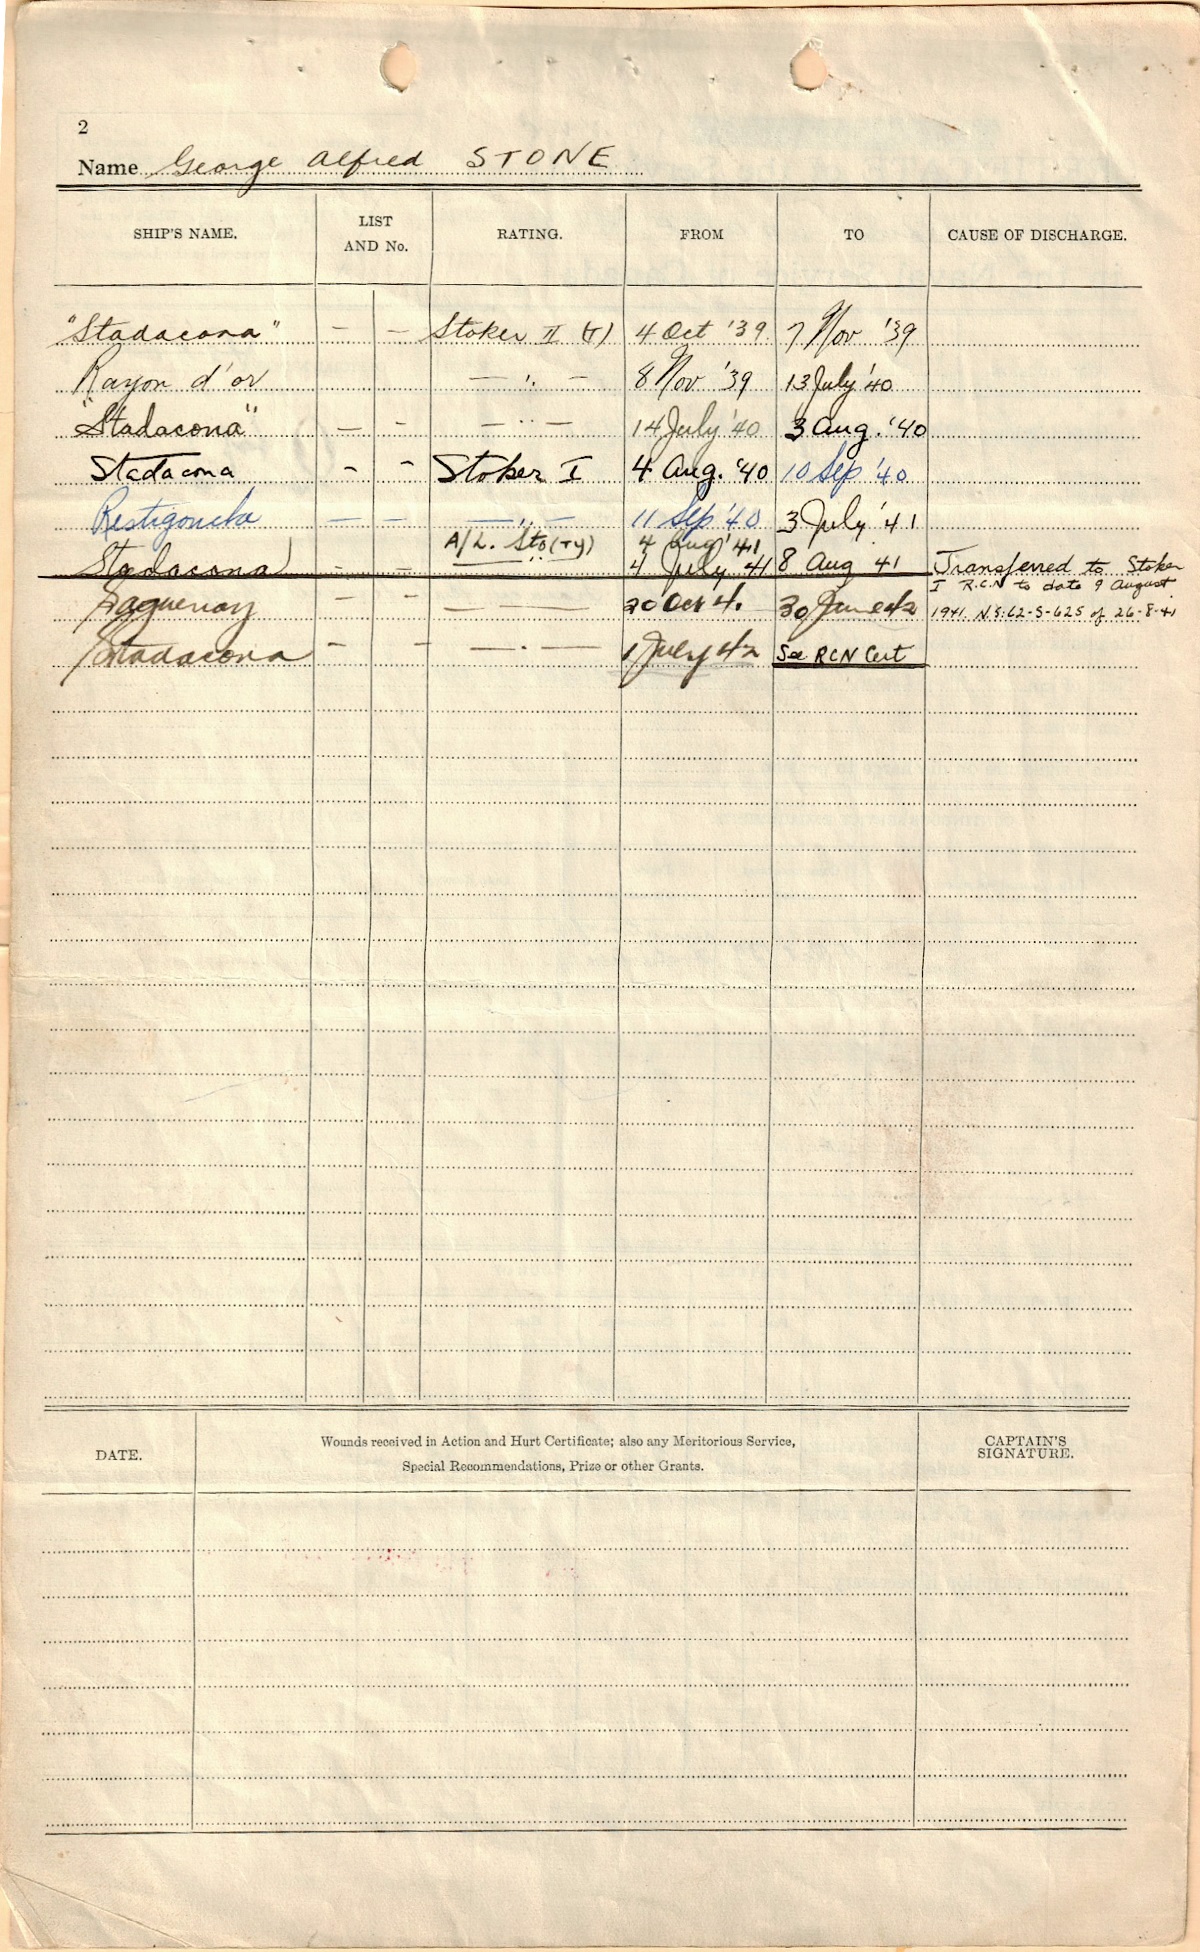 2
Name George Alfred STONE
SHIP'S NAME. LIST AND No. RATING. FROM TO CAUSE OF DISCHARGE.
"Stadacona" — — Stoker II (T) 4 Oct '39 7 Nov '39
Rayon d'or — " — 8 Nov '39 13 July '40
"Stadacona" — — — " — 14 July '40 3 Aug. '40
Stadacona — — Stoker I 4 Aug. '40 10 Sep '40
Restigouche — — — " — 11 Sep '40 3 July '41
A/L. Sto (Ty) 4 Aug '41
Stadacona — — 4 July 41 8 Aug 41 Transferred to Stoker
I R.C.N to date 9 August
Saguenay — — — — — 20 Oct 4. 30 June 42 1941. N.S. 62-S-625 of 26-8-41
Stadacona — — — . — 1 July 42 See RCN Cert
DATE. Wounds received in Action and Hurt Certificate; also any Meritorious Service, CAPTAIN'S
Special Recommendations, Prize or other Grants. SIGNATURE.